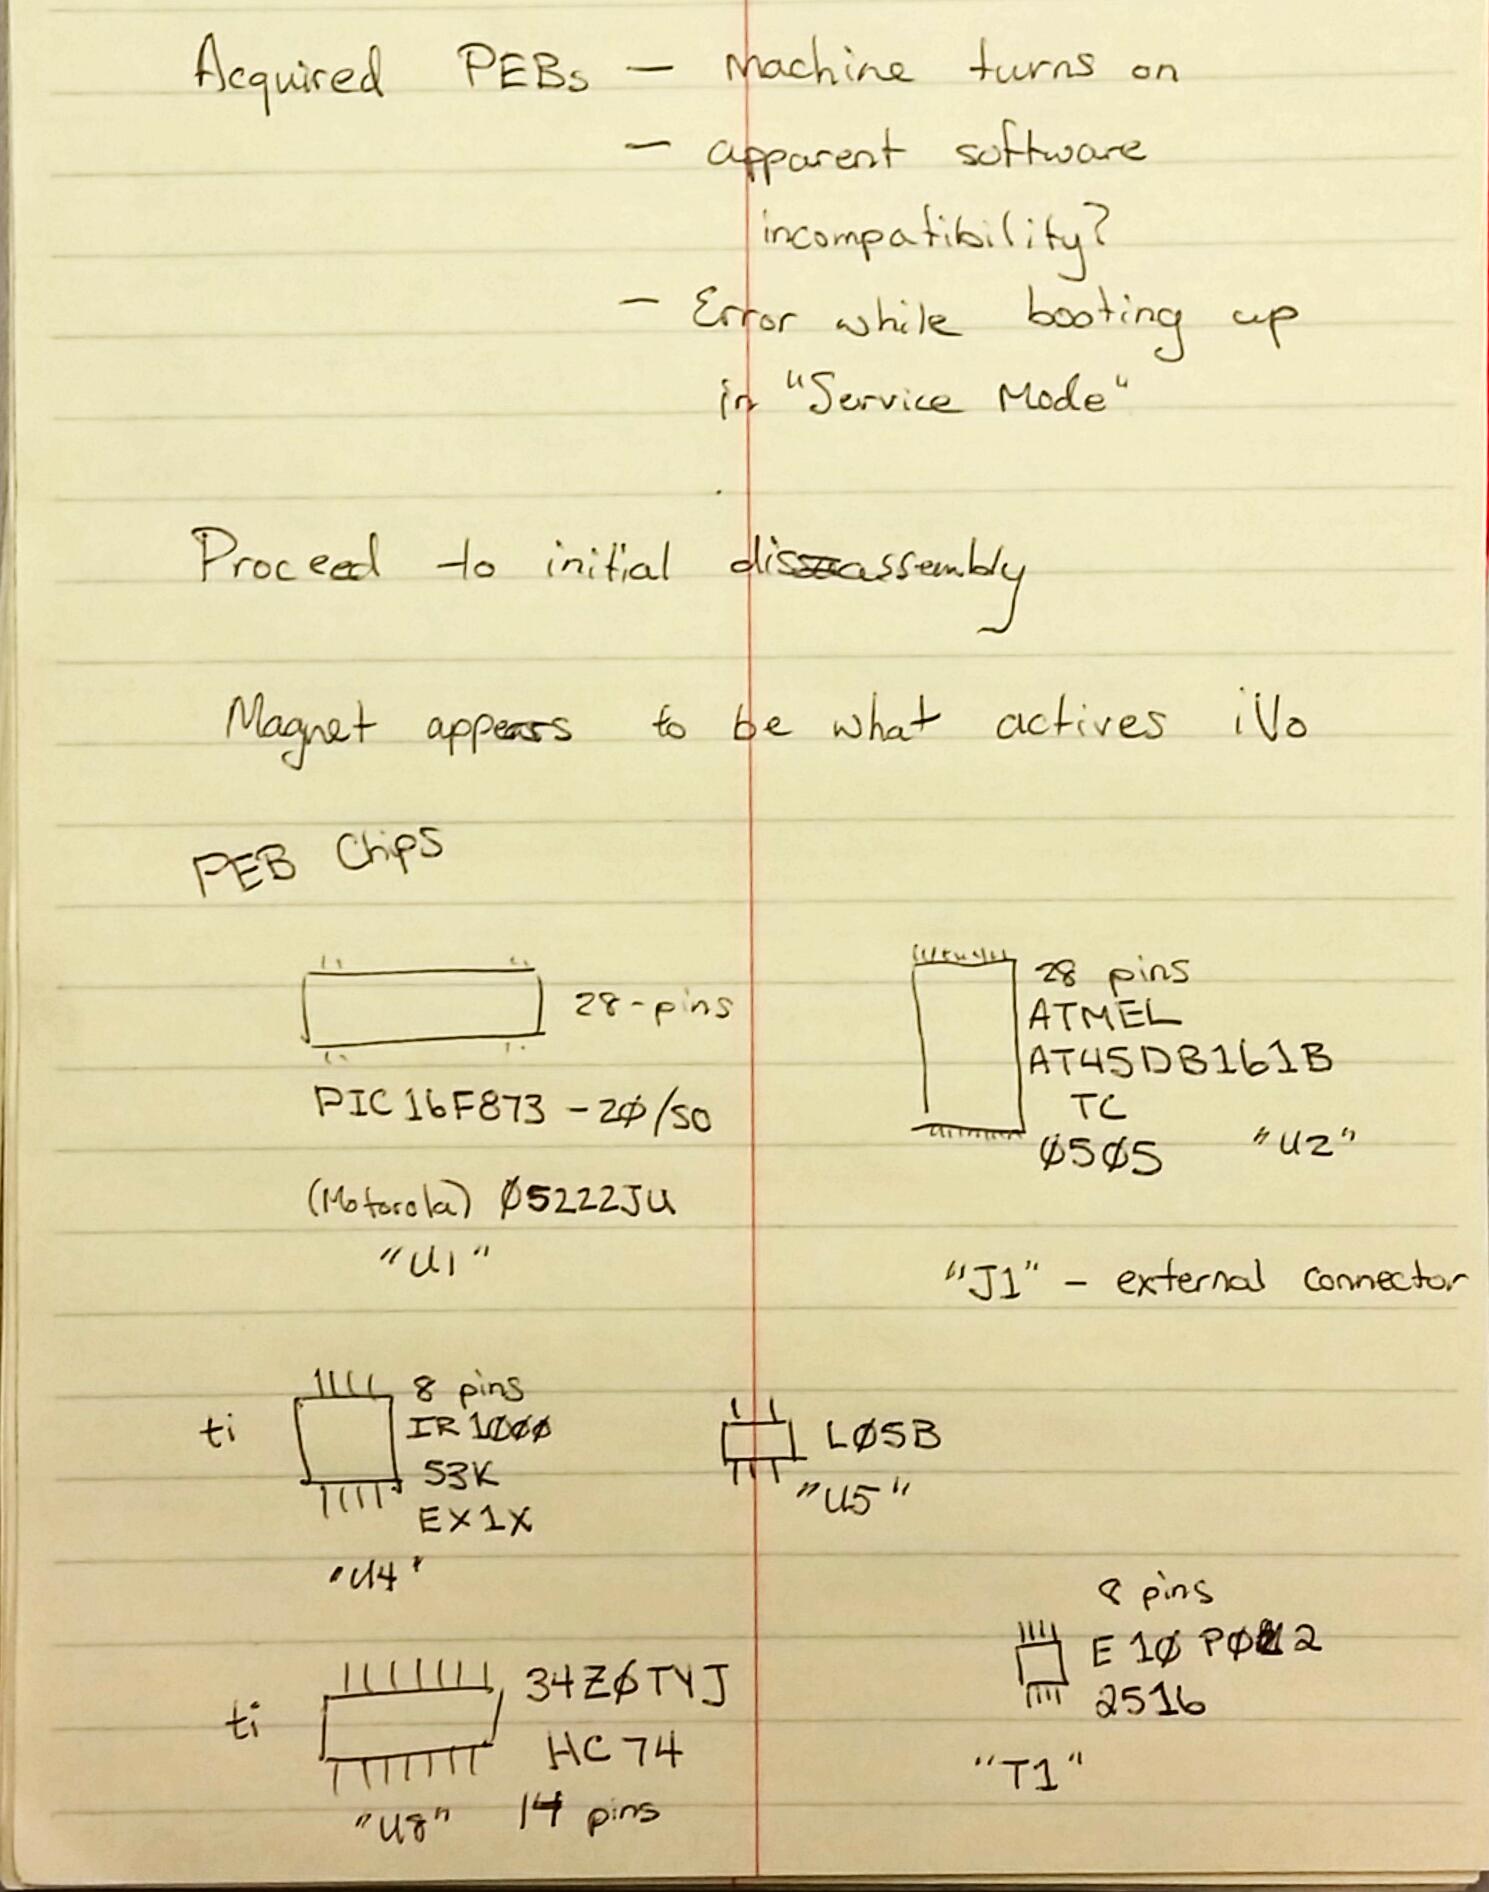 Acquired PEBs — Machine turns on
— apparent software
incompatibility?
— Error while booting up
in "Service Mode"
Proceed to initial disassembly
Magnet appears to be what actives iVo
PEB Chips
28-pins
PIC16F873 -2Ø/SO
(Motorola) Ø5222JU
"U1"
28 pins
ATMEL
AT45DB161B
TC
Ø5Ø5 "U2"
"J1" - external connector
ti
8 pins
IR1ØØØ
53K
EX1X
"U4"
LØ5B
"U5"
8 pins
E 1Ø
2516
"T1"
ti
34ZØTYJ
HC74
"U8" 14 pins